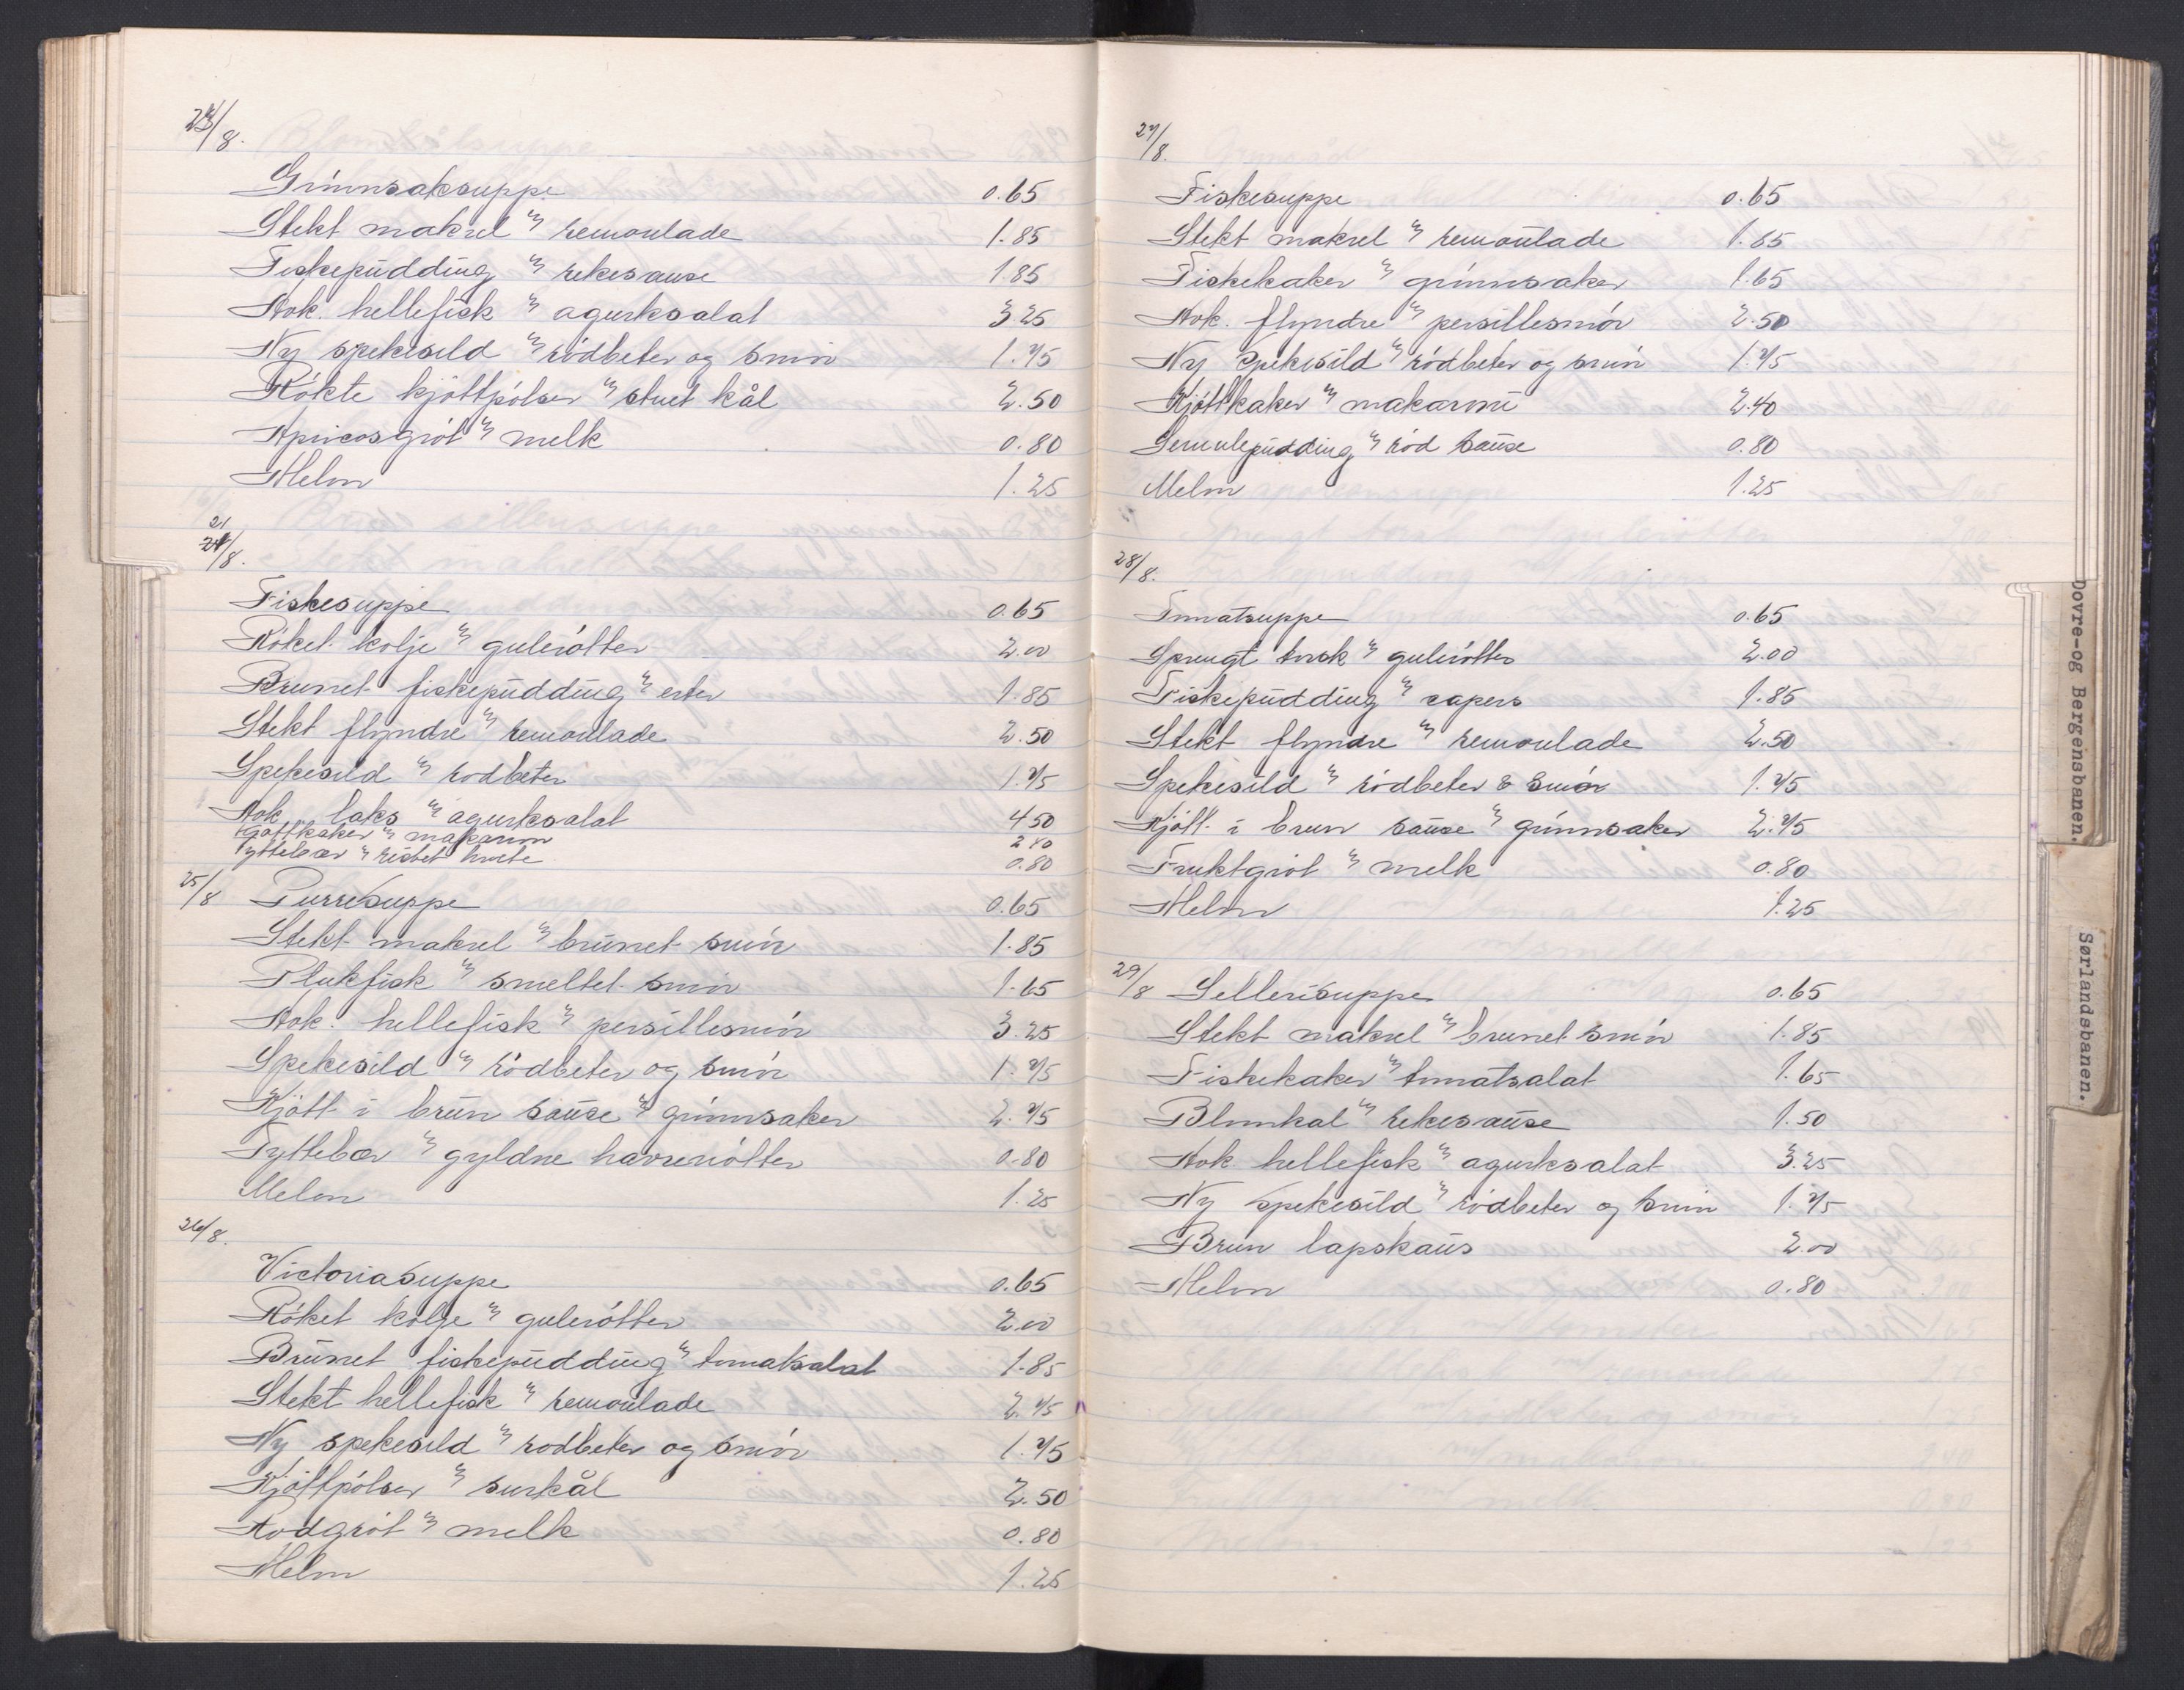 23/8.
Grünnsaksuppe 0.65
Stekt makrel m/ remoulade 1.85
Fiskepudding m/ rekesause 1.85
Kok. hellefisk m/ agurksalat 3.25
Ny spekesild m/ rödbeter og smör 1.75
Rökte kjöttpölser m/ stuet kål 2.50
Apricosgröt m/ melk 0.80
Melon 1.25
21
24/8.
Fiskesuppe 0.65
Röket kolje m/ gulerötter 2.00
Brunet fiskepudding m/ erter 1.85
Stekt flyndre m/ remoulade 2.50
Spekesild m/ rodbeter 1.75
Kok laks m/ agurksalat 4.50
Kjøttkaker m/ makaroni 2.40
Tyttebær m/ ristet hvete 0.80
25/8 Purresuppe 0.65
Stekt makrel m/ brunet smör 1.85
Plukfisk m/ smeltet smör 1.65
Kok. hellefisk m/ persillesmör 3.25
Spekesild m/ rödbeter og smör 1.75
Kjött i brun sause m/ grünnsaker 2.75
Tyttebær m/ gyldne havrenötter 0.80
Melon 1.25
26/8.
Victoriasuppe 0.65
Röket kolje m/ gulerötter 2.00
Brunet fiskepudding m/ tomatsalat 1.85
Stekt hellefisk m/ remoulade 2.75
Ny spekesild m/ rodbeter og smör 1.75
Kjöttpölser m/ surkål 2.50
Rodgröt m/ melk 0.80
Melon 1.25
27/8.
Fiskesuppe 0.65
Stekt makrel m/ remoulade 1.85
Fiskekaker m/ grünnsaker 1.65
Kok. flyndre m/ persillesmör 2.50
Ny spekesild m/ rödbeter og smör 1.75
Kjöttkaker m/ makaroni 2.40
Semulepudding m/ röd sause 0.80
Melon 1.25
28/8.
Tomatsuppe 0.65
Sprengt torsk m/ gulerötter 2.00
Fiskepudding m/ capers 1.85
Stekt flyndre m/ remoulade 2.50
Spekesild m/ rödbeter & smör 1.75
Kjött i brun sause m/ grünnsaker 2.75
Fruktgröt m/ melk 0.80
Melon 1.25
29/8 Sellerisuppe 0.65
Stekt makrel m/ brunet smör 1.85
Fiskekaker m/ tomatsalat 1.65
Blomkal m/ rekesause 1.50
Kok hellefisk m/ agurksalat 3.25
Ny spekesild m/ rödbeter og smör 1.75
Brun lapskaus 2.00
Melon 0.80
Dovre-og Bergensbanen.
Sørlandsbanen.